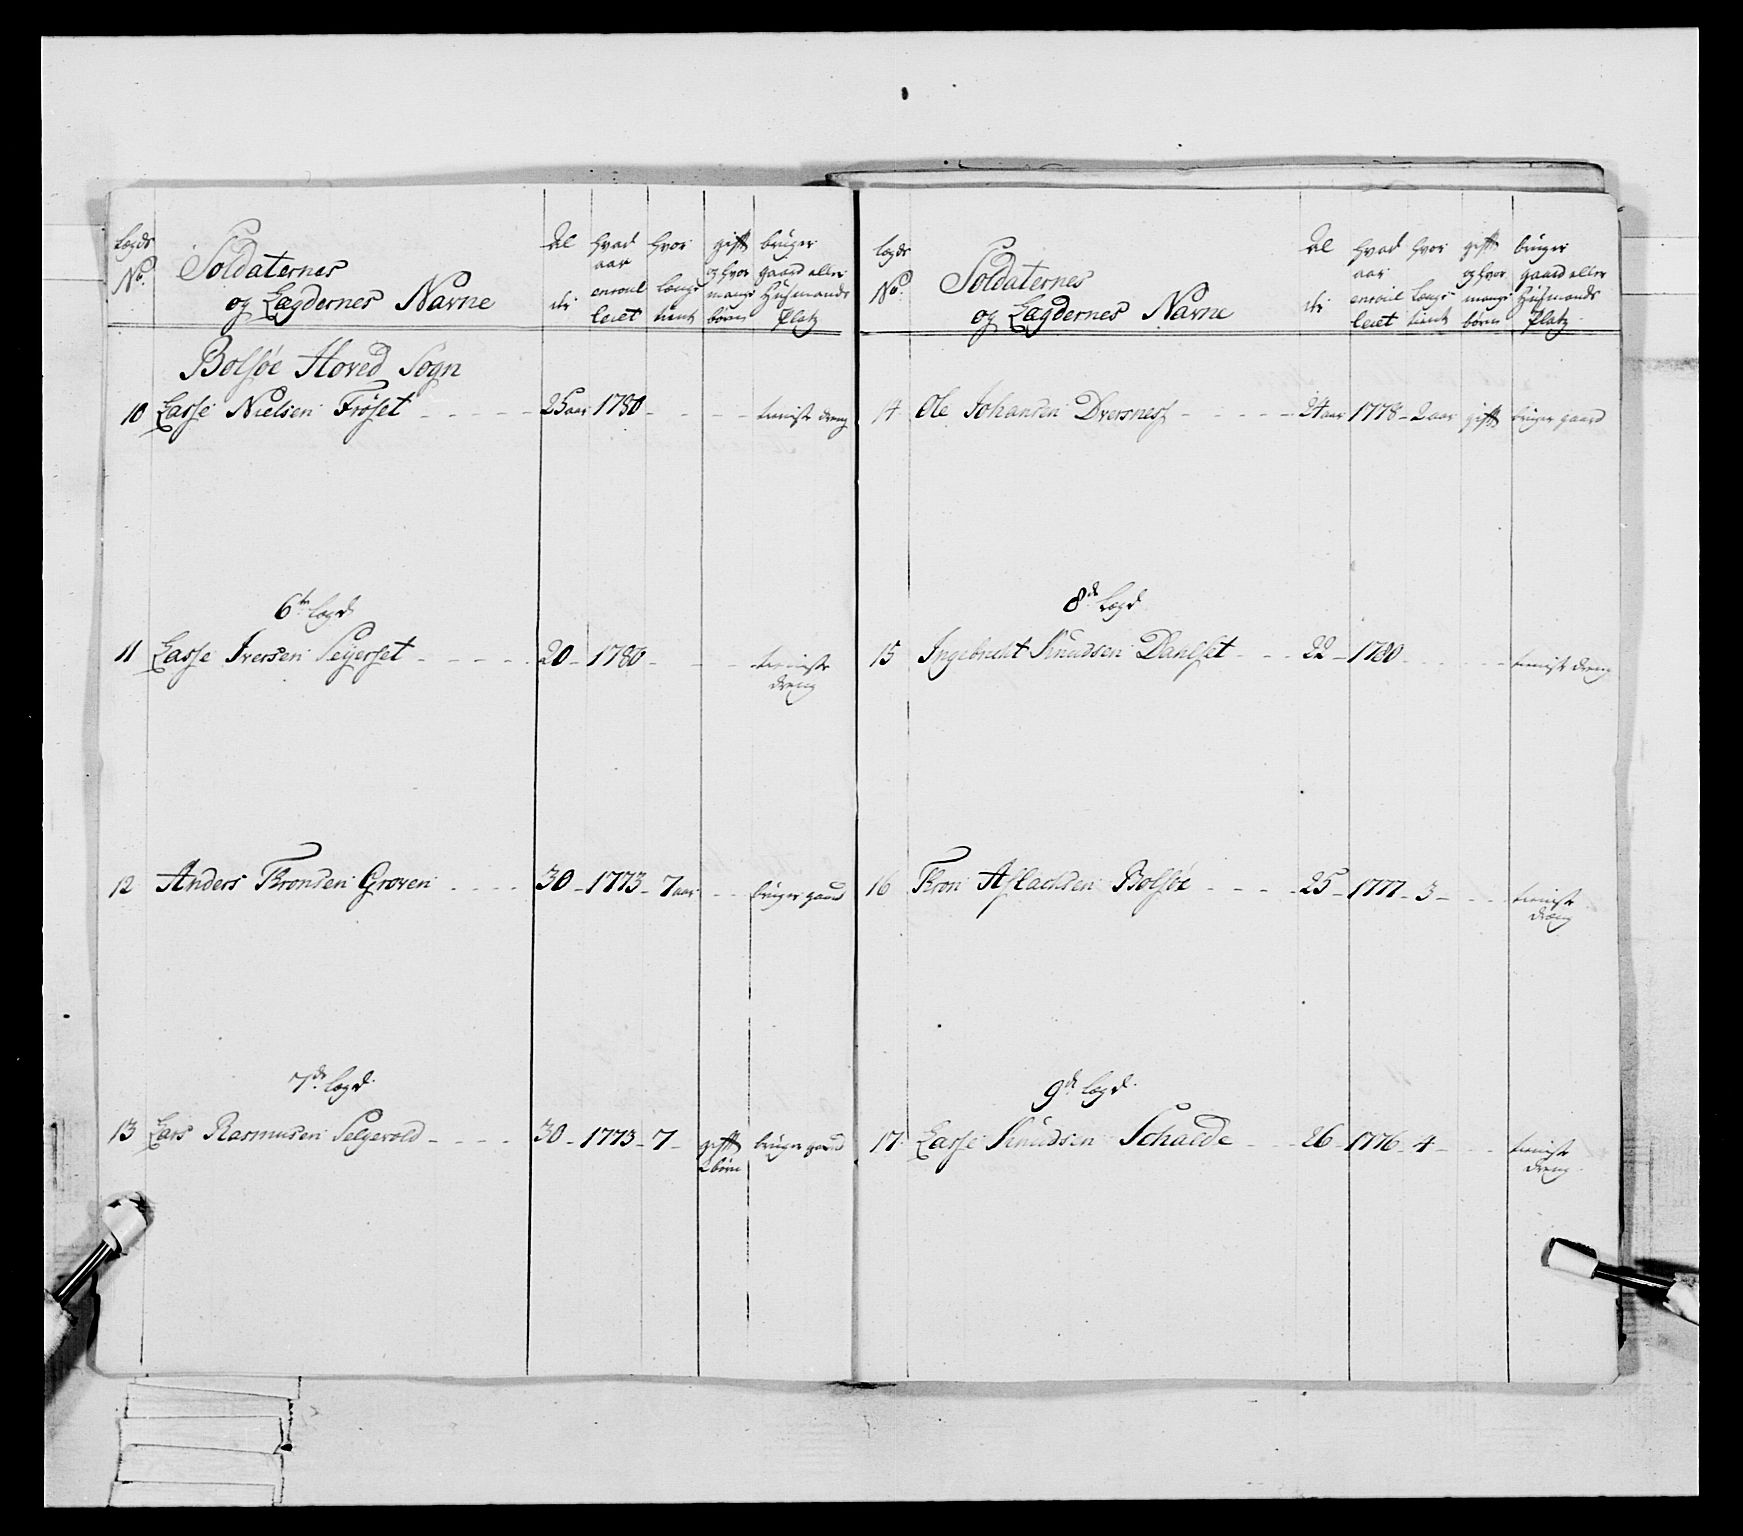 Legds No. Soldaternes og Lægdernes Navne Al der hvad aar enroul leret hvor længe tient gift og hvor mange børn bruger gaard eller Huusmands Platz
Bolsøe Hoved Sogn
10 Lasse Nielsen Frøset 25 aar 1780 tieniste dreng
6te Legd
11 Lasse Iversen 20 1780 tieniste
dreng
12 Anders Tronsen Groven 30 1773 7 aar bruger gaard
7de Legd
13 Lars Rasmusen Selgevold 30 1773 7 gift bruger gaard
2 børn
Legds No. Soldaternes og Lægdernes Navne Al der hvad aar enroul leret hvor længe tient gift og hvor mange børn bruger gaard eller Huusmands Platz
14 Ole Johansen Dversnes 24 aar 1778 2 aar gift bruger gaard
8de Legd
15 Ingebrecht Knudsen Dahlset 22 1780 tieniste dreng
16 Tron Aslachsen Bolsøe 25 1777 3 tieniste
dreng
9de Legd
17 Lasse Knudsen Schalde 26 1776 4 tieniste
dreng